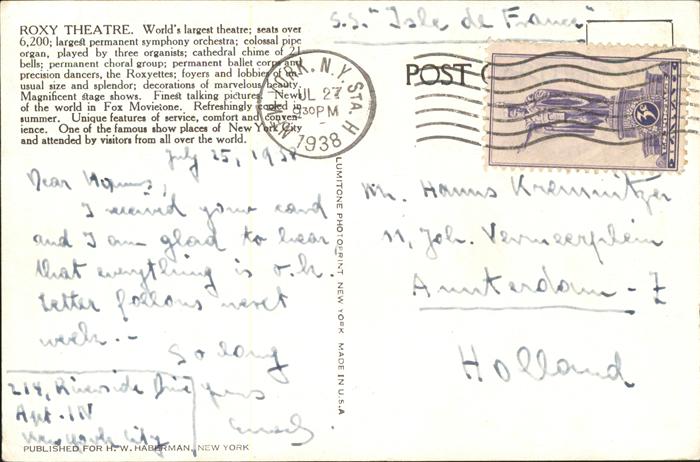 S.S. "Isle de France"
ROXY THEATRE. World's largest theatre; seats over
6,200; largest permanent symphony orchestra; colossal pipe
organ, played by three organists; cathedral chime of 21
bells; permanent choral group; permanent ballet corps and
precision dancers, the Roxyettes; foyers and lobbies of un-
usual size and splendor; decorations of marvelous beauty.
Magnificent stage shows. Finest talking pictures. News
of the world in Fox Movietone. Refreshingly cooled in
summer. Unique features of service, comfort and conven-
ience. One of the famous show places of New York City
and attended by visitors from all over the world.
NEW YORK, N.Y. STA. H
JUL 27
930PM
1938
POST
July 25, 1938
Dear Hanns,
I received your card
and I am glad to hear
that everything is o.k.
Letter follows next
week. -
So long
yours
218, Riverside Drive
Apt. 1N
New York City
PUBLISHED FOR H. W. HABERMAN, NEW YORK
LUMITONE PHOTOPRINT NEW YORK MADE IN U.S.A
Mr. Hanns Kremnitzer
11, Joh. Vermeerplein
Amsterdam - Z
Holland